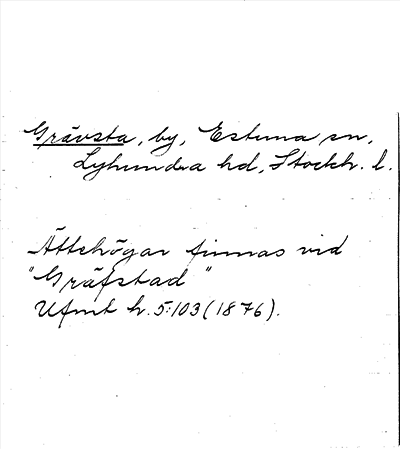 Grävsta, by, Estuna sn,
Lyhundra hd, Stockh. l.
Ättehögar finnas vid
"Gräfstad"
Ufmt h. 5:103 (1876).